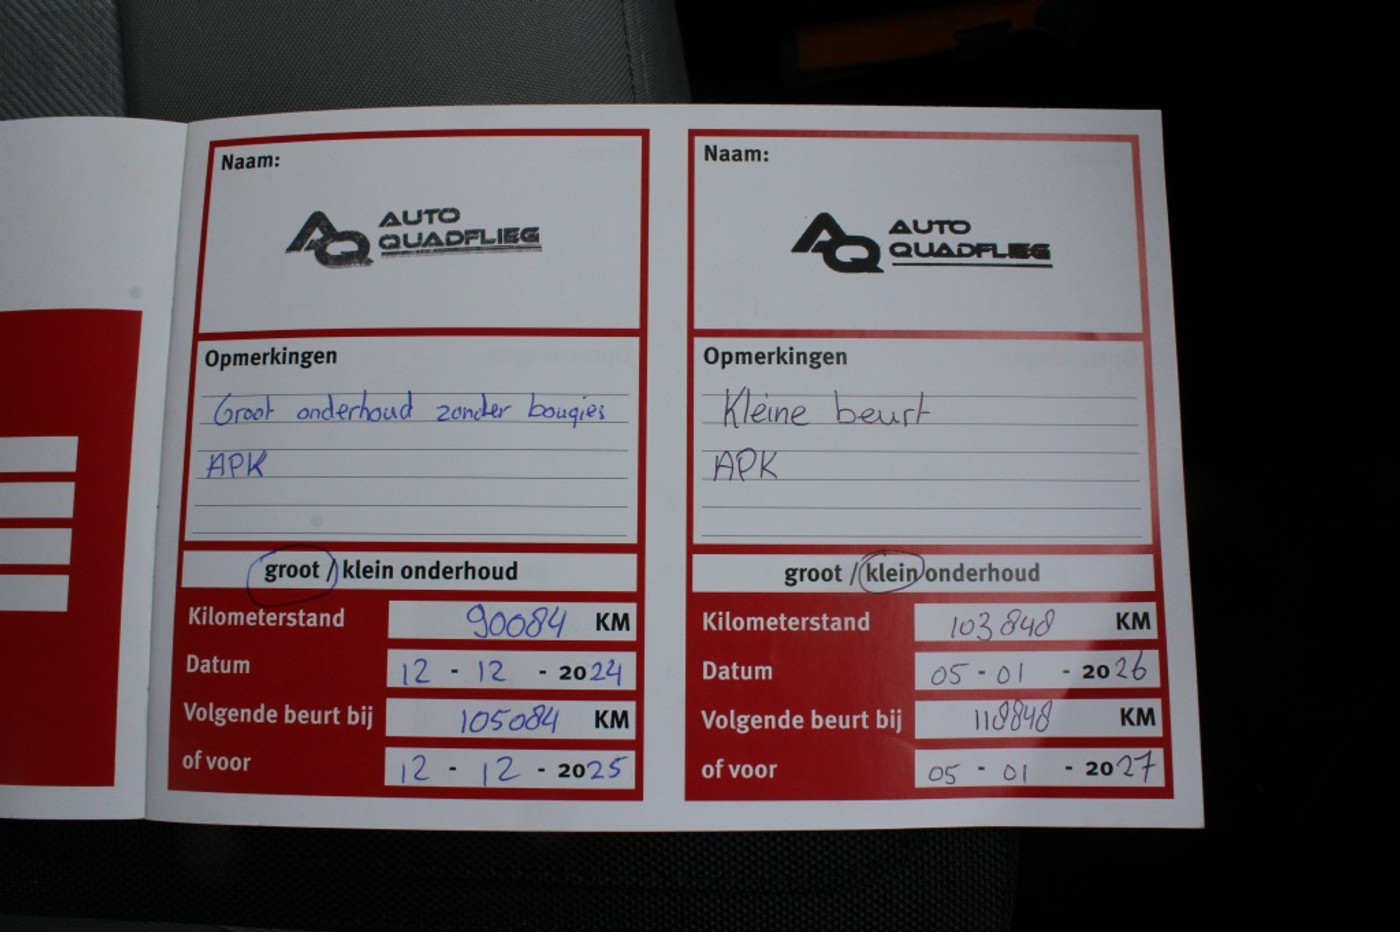 Naam:
AQ AUTO
QUADFLIEG
Opmerkingen
Groot onderhoud zonder bougies
APK
groot / klein onderhoud
Kilometerstand 90084 KM
Datum 12 - 12 - 2024
Volgende beurt bij 105084 KM
of voor 12 - 12 - 2025
Naam:
AQ AUTO
QUADFLIEG
Opmerkingen
Kleine beurt
APK
groot / klein onderhoud
Kilometerstand 103848 KM
Datum 05 - 01 - 2026
Volgende beurt bij 118848 KM
of voor 05 - 01 - 2027